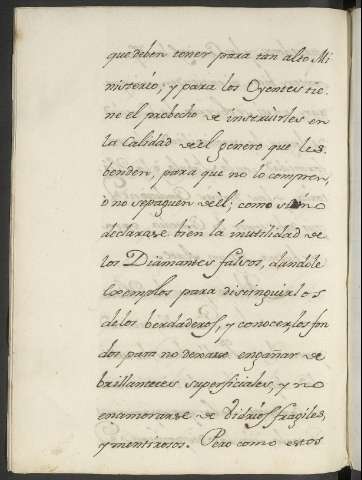 que deben tener para tan alto Mi
nisterio; y para los Oyentes tie-
ne el probecho de instruirles en
la Calidad de el genero que les
benden, para que no lo compren,
o no se paguen de èl; como si uno
declarase bien la inutilidad de
los Diamantes falsos, dandole
exemplos para distinguirlos
de los berdaderos, y conocer los fon
dos para no dexarse engañar de
brillanteces superficiales, y no
enamorarse de Vidrios fragiles,
y mentirosos. Pero como estos